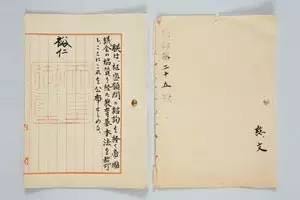 朕は、枢密顧問の諮詢を経て、帝國
議会の協賛を経た教育基本法を裁可
し、ここにこれを公布せしめる。
裕仁
二十五